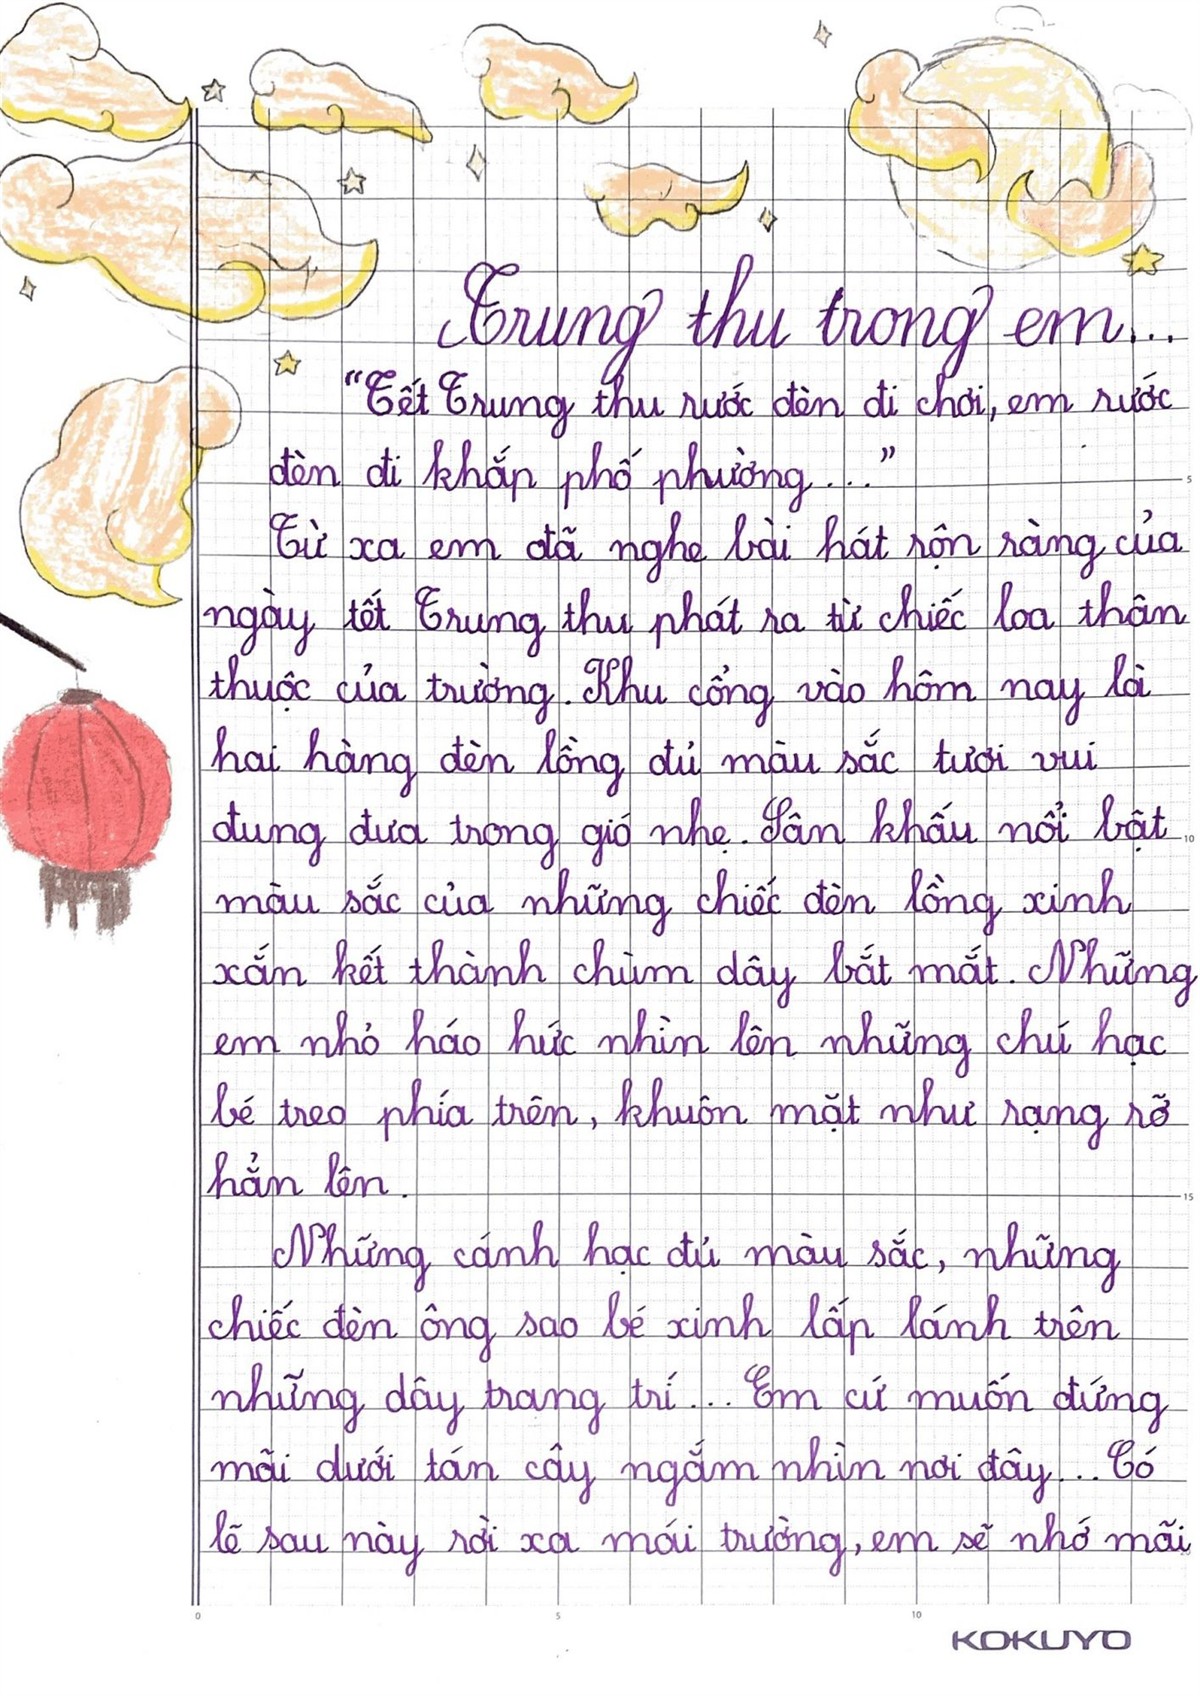 Trung thu trong em...
“Tết Trung thu rước đèn đi chơi, em rước
đèn đi khắp phố phường...”
Từ xa em đã nghe bài hát rộn ràng của
ngày tết Trung thu phát ra từ chiếc loa thân
thuộc của trường. Khu cổng vào hôm nay là
hai hàng đèn lồng đủ màu sắc tươi vui
đung đưa trong gió nhẹ. Sân khấu nổi bật
màu sắc của những chiếc đèn lồng xinh
xắn kết thành chùm dây bắt mắt. Những
em nhỏ háo hức nhìn lên những chú hạc
bé treo phía trên, khuôn mặt như rạng rỡ
hẳn lên.
Những cánh hạc đủ màu sắc, những
chiếc đèn ông sao bé xinh lấp lánh trên
những dây trang trí... Em cứ muốn đứng
mãi dưới tán cây ngắm nhìn nơi đây... Có
lẽ sau này rời xa mái trường, em sẽ nhớ mãi
5
10
15
0 5 10
KOKUYO